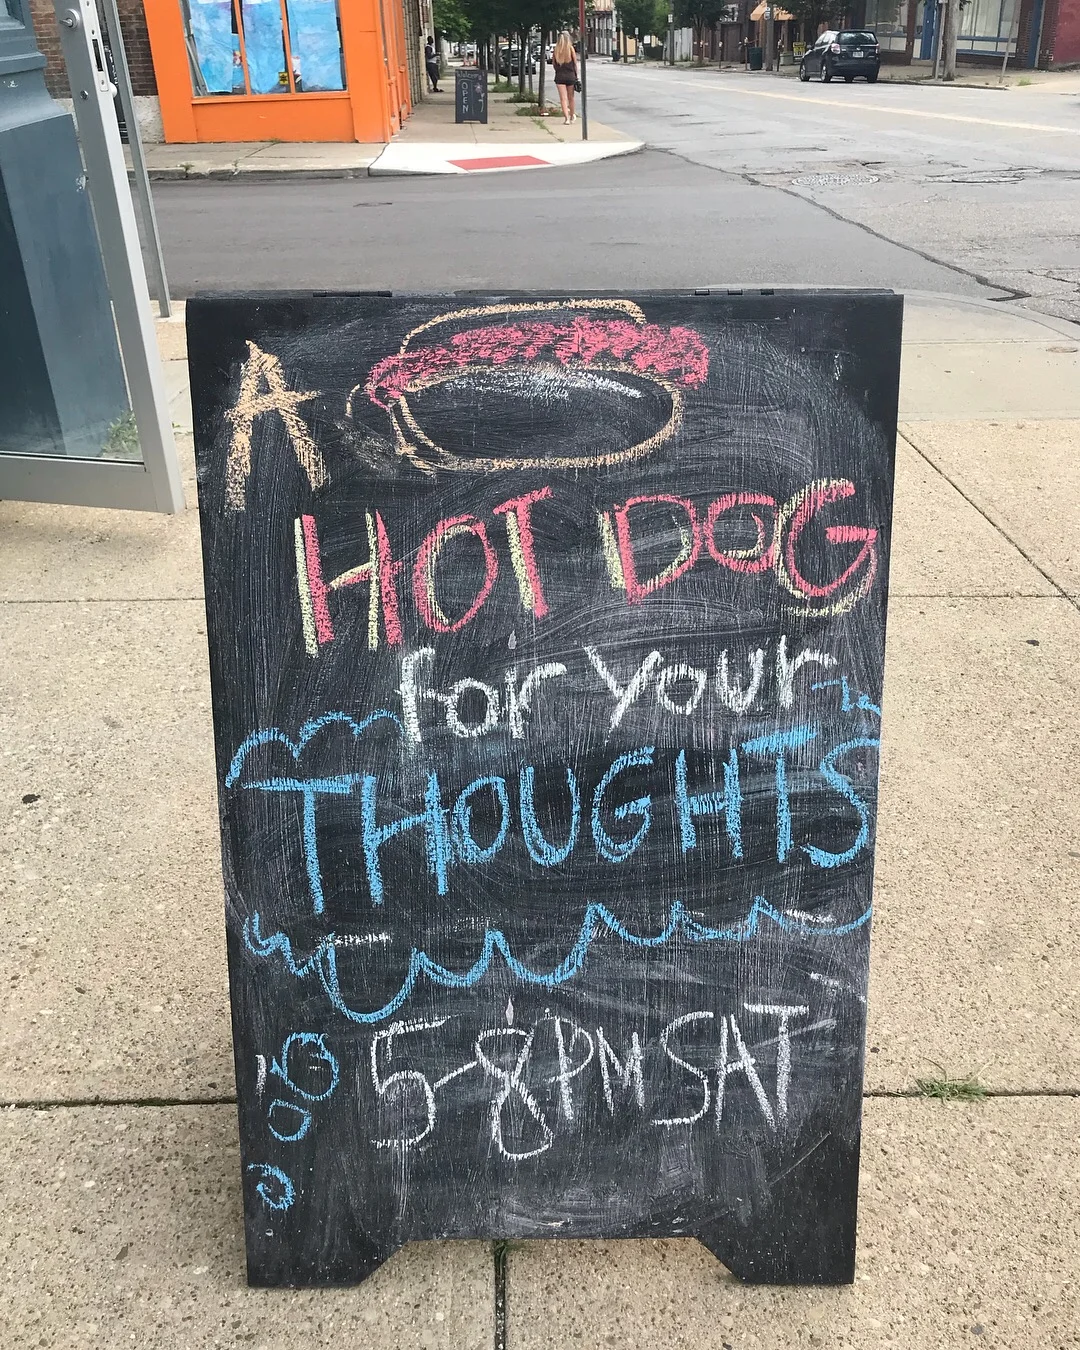 OPEN
A
HOT DOG
for your
THOUGHTS
5-8PM SAT